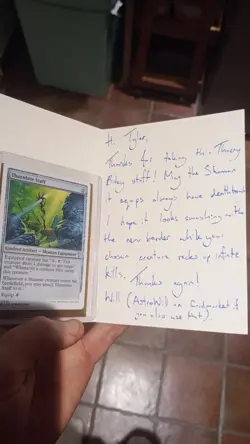 Thornbite Staff
Kindred Artifact – Shaman Equipment
Equipped creature has "2, T: This
creature deals 1 damage to any target"
and "Whenever a creature dies, untap
this creature."
Whenever a Shaman creature enters the
battlefield, you may attach Thornbite
Staff to it.
Equip 4
Hi Tyler,
Thanks for taking this Thorny
Bitey stuff! May the Shaman
it equips always have deathtouch
I hope it looks smashing with
the new border while your
chosen creature racks up infinite
kills.
Thanks again!
Will (AstroWill on Cardmarket if
you also use that).